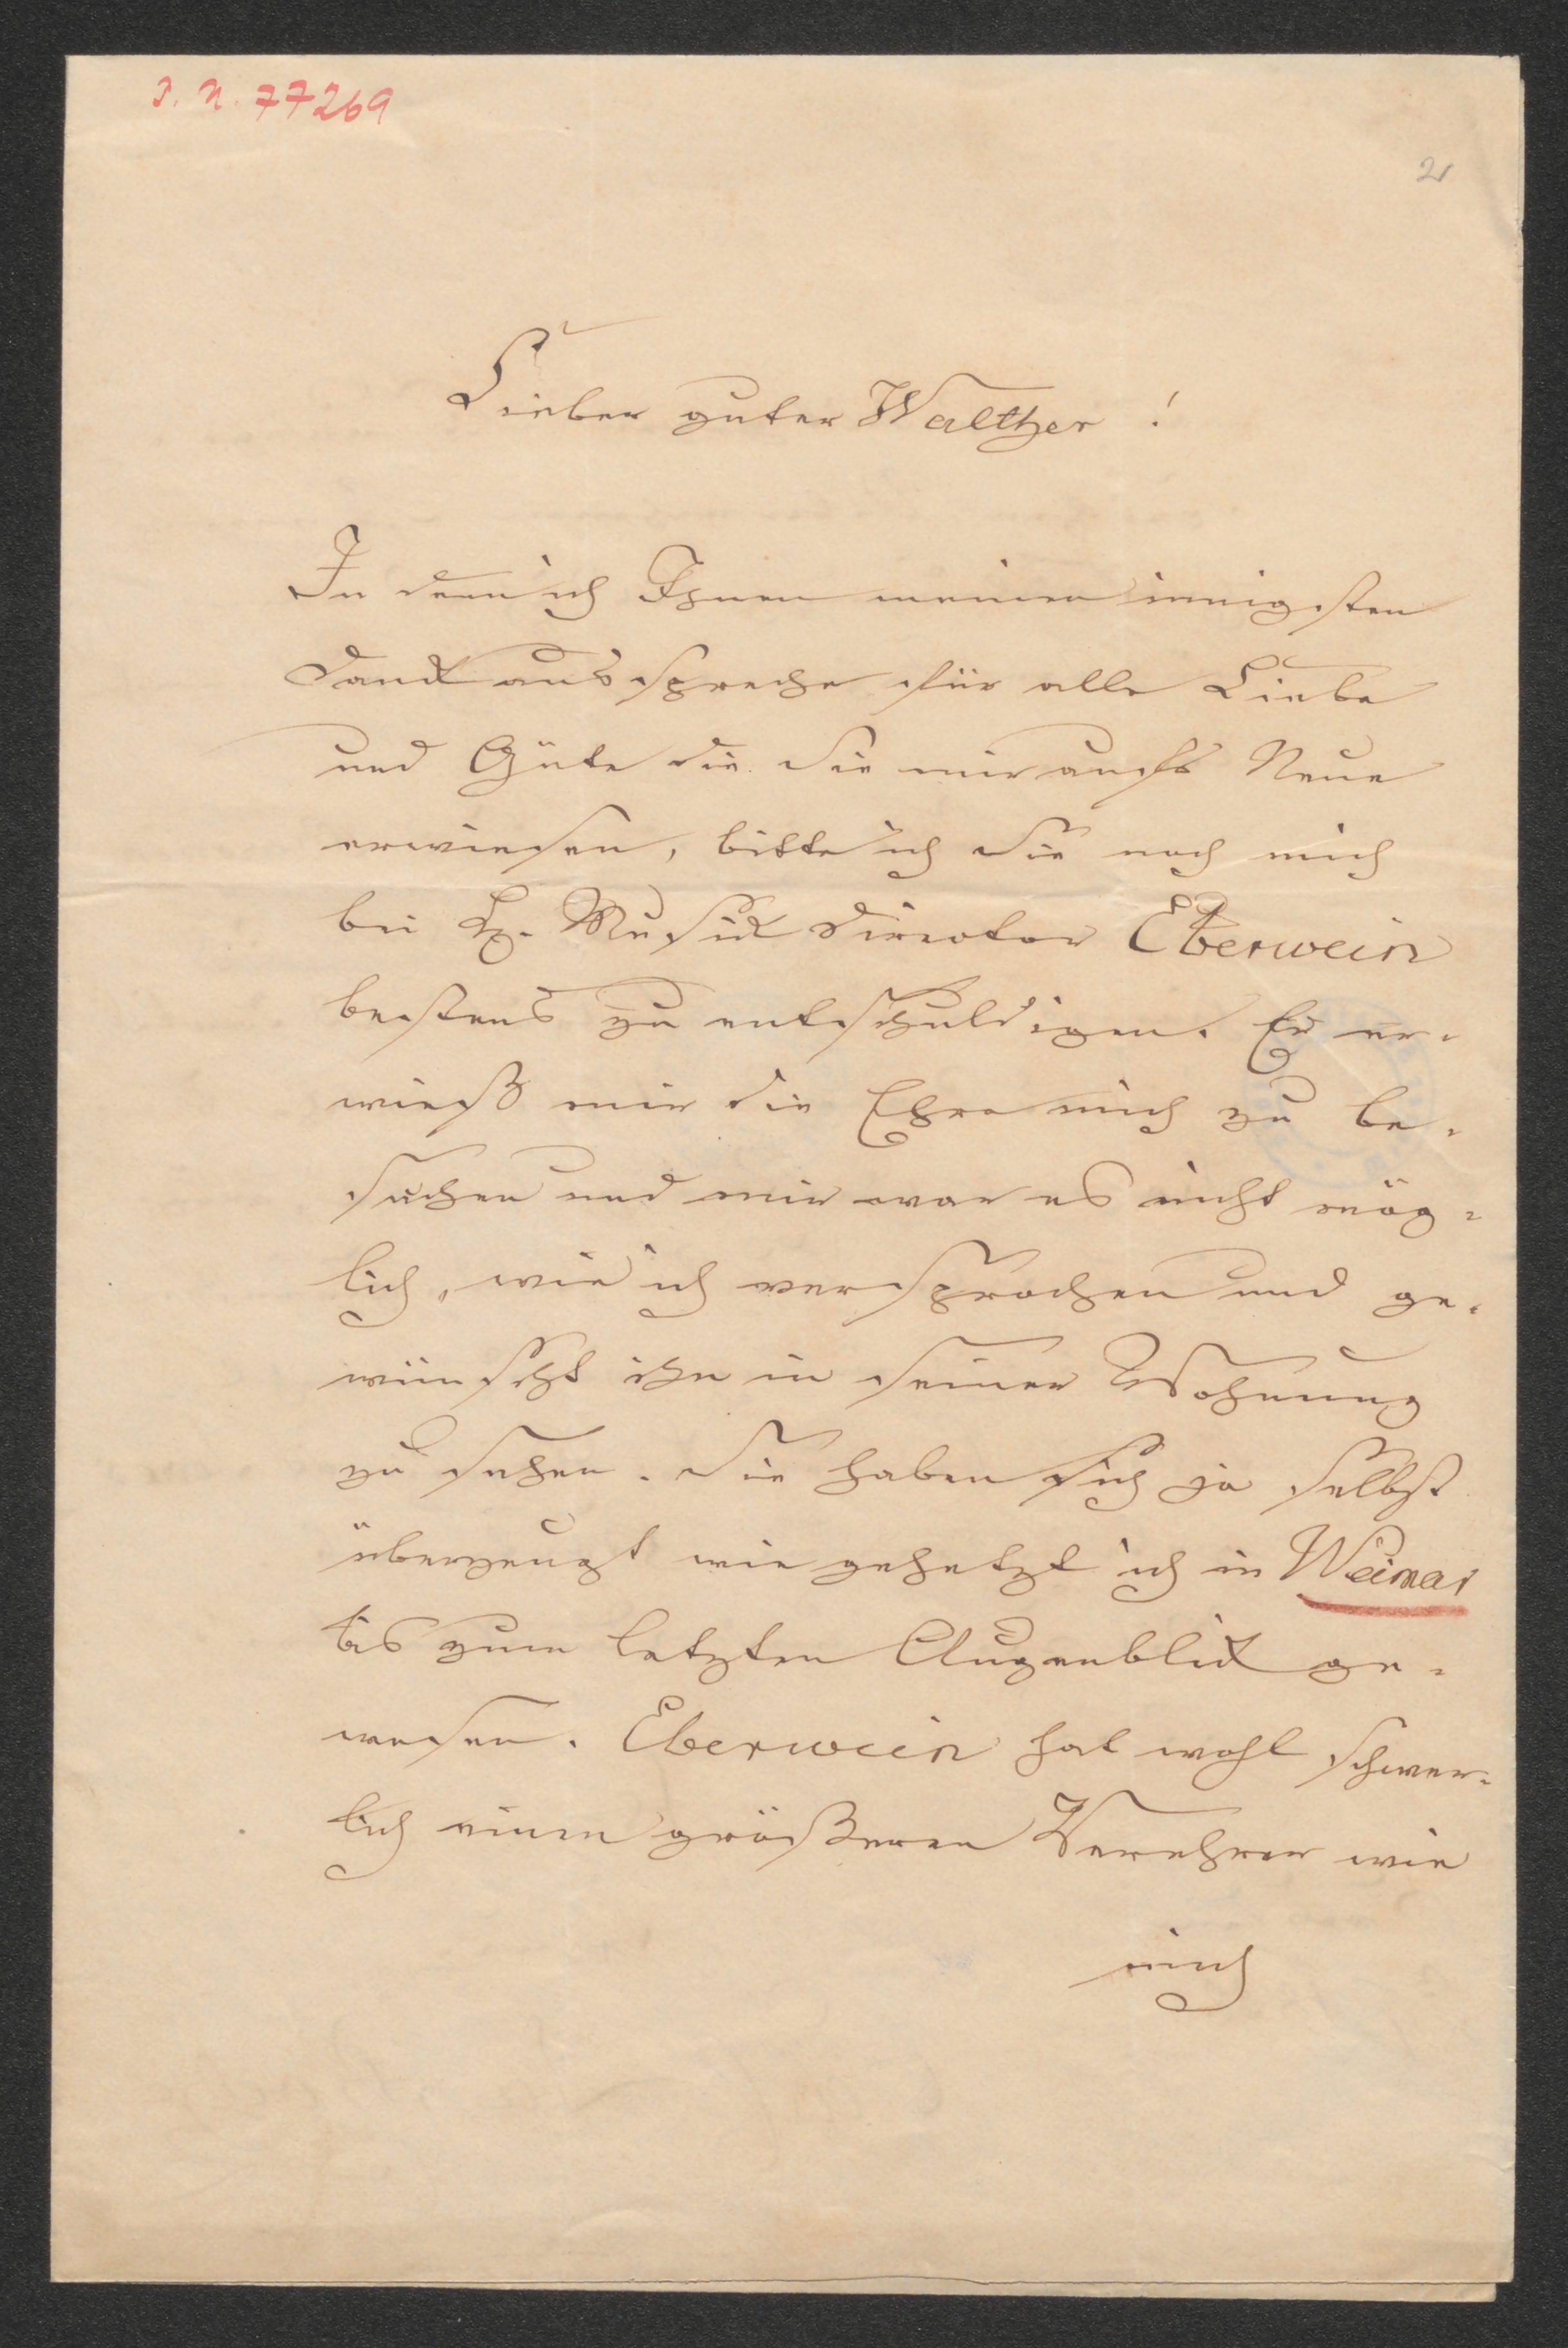 I. N. 77269
2
Lieber guter Walther!
In dem ich Ihnen meinen innigsten
Dank ausspreche für alle Liebe
und Güte die Sie mir aufs Neue
erwiesen, bitte ich Sie noch mich
bei H. Musik Director Eberwein
bestens zu entschuldigen. Er er-
wieß mir die Ehre mich zu be-
suchen und mir war es nicht mög-
lich, wie ich versprochen und ge-
wünscht ihn in seiner Wohnung
zu sehen. Sie haben sich ja selbst
überzeugt wie gehetzt ich in Weimar
bis zum letzten Augenblick ge-
wesen. Eberwein hat wohl schwer-
lich einen größeren Verehrer wie
mich